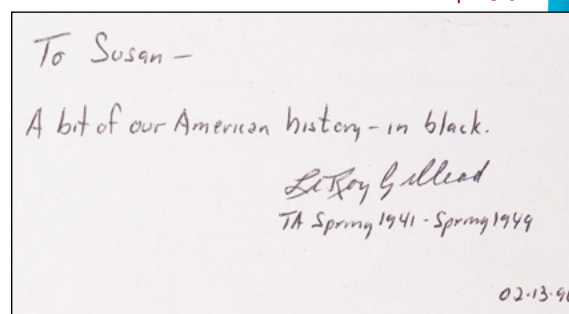 To Susan –
A bit of our American history – in black.
LeRoy Gillead
TA Spring 1941 - Spring 1949
02.13.9